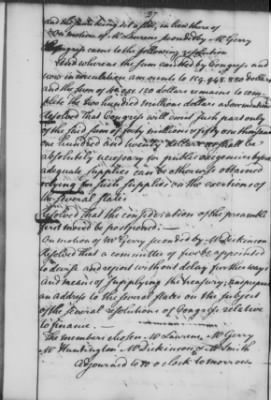 and the same being
On motion of Mr Laurens seconded by Mr Gerry
Congress came to the following resolution
And whereas the sum emitted by Congress and
now in circulation amounts to 159,948,880 dollars
and the sum of 40,051,120 dollars remains to com-
plete the two hundred million dollars abovementioned
Resolved That Congress will emit such part only
of the said sum of forty millions & fifty one thousand
one hundred and twenty dollars as shall be
absolutely necessary for public exigencies before
adequate supplies can be otherwise obtained
relying for such supplies on the exertions of
the several states
Resolved That the consideration of the preamble
first moved be postponed.
On motion of Mr Gerry seconded by Mr Dickinson
Resolved That a committee of five be appointed
to devise and report without delay further ways
and means of supplying the treasury; and prepare
an address to the several states on the subject
of the several resolutions of Congress relative
to finance.
The members chosen Mr Laurens, Mr Gerry
Mr Huntington Mr Dickinson & Mr Smith
adjourned to 10 o clock tomorrow